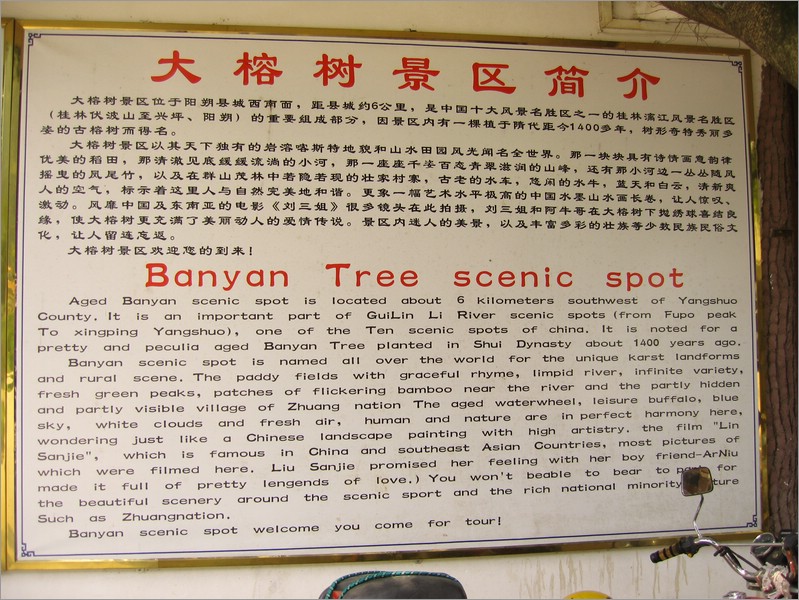 大榕树景区简介
大榕树景区位于阳朔县城西南面，距县城约6公里，是中国十大风景名胜区之一的桂林漓江风景名胜区
（桂林伏波山至兴坪、阳朔）的重要组成部分，因景区内有一棵植于隋代距今1400多年，树形奇特秀丽多
姿的古榕树而得名。
大榕树景区以其天下独有的岩溶喀斯特地貌和山水田园风光闻名全世界。那一块块具有诗情画意韵律
优美的稻田，那清澈见底缓缓流淌的小河，那一座座千姿百态青翠滋润的山峰，还有那小河边一丛丛随风
摇曳的凤尾竹，以及在群山茂林中若隐若现的壮家村寨，古老的水车，悠闲的水牛，蓝天和白云，清新爽
人的空气，标示着这里人与自然完美地和谐。更象一幅艺术水平极高的中国水墨山水画长卷，让人惊叹、
激动。风靡中国及东南亚的电影《刘三姐》很多镜头在此拍摄，刘三姐和阿牛哥在大榕树下抛绣球喜结良
缘，使大榕树更充满了美丽动人的爱情传说。景区内迷人的美景，以及丰富多彩的壮族等少数民族民俗文
化，让人留连忘返。
大榕树景区欢迎您的到来！
Banyan Tree scenic spot
Aged Banyan scenic spot is located about 6 kilometers southwest of Yangshuo
County. It is an important part of GuiLin Li River scenic spots (from Fupo peak
To xingping Yangshuo), one of the Ten scenic spots of china. It is noted for a
pretty and peculia aged Banyan Tree planted in Shui Dynasty about 1400 years ago.
Banyan scenic spot is named all over the world for the unique karst landforms
and rural scene. The paddy fields with graceful rhyme, limpid river, infinite variety,
fresh green peaks, patches of flickering bamboo near the river and the partly hidden
and partly visible village of Zhuang nation The aged waterwheel, leisure buffalo, blue
sky, white clouds and fresh air, human and nature are in perfect harmony here,
wondering just like a Chinese landscape painting with high artistry. the film "Lin
Sanjie", which is famous in China and southeast Asian Countries, most pictures of
which were filmed here. Liu Sanjie promised her feeling with her boy friend-ArNiu
made it full of pretty lengends of love.) You won't beable to bear to for
the beautiful scenery around the scenic sport and the rich national minority
Such as Zhuangnation.
Banyan scenic spot welcome you come for tour!